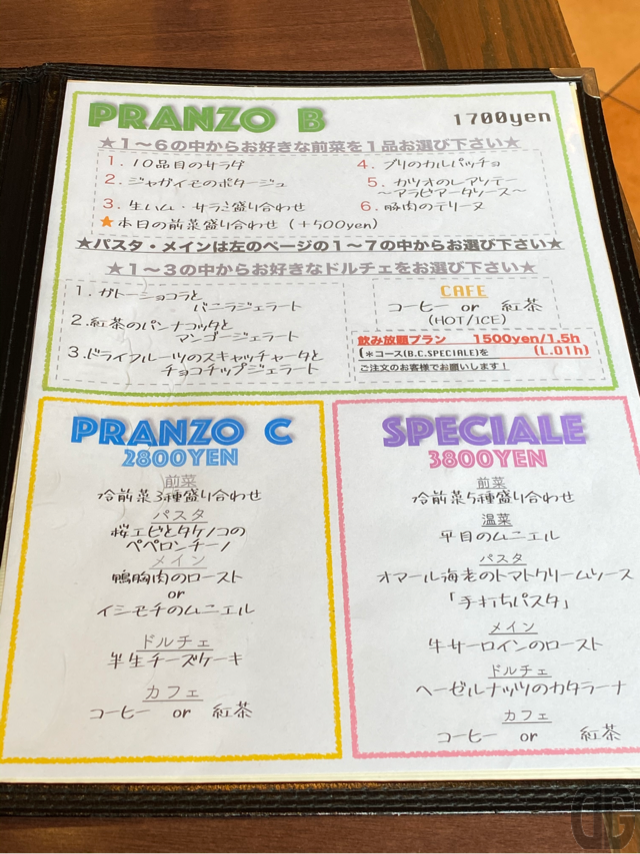 PRANZO B 1700yen
★1～6の中からお好きな前菜を1品お選び下さい★
1. 10品目のサラダ
2. ジャガイモのポタージュ
3. 生ハム・サラミ盛り合わせ
4. ブリのカルパッチョ
5. カツオのレアソテー
～アラビアータソース～
6. 豚肉のテリーヌ
★本日の前菜盛り合わせ (+500yen)
★パスタ・メインは左のページの1～7の中からお選び下さい★
★1～3の中からお好きなドルチェをお選び下さい★
1. ガトーショコラと
バニラジェラート
2. 紅茶のパンナコッタと
マンゴージェラート
3. ドライフルーツのスキャッチャータと
チョコチップジェラート
CAFE
コーヒー or 紅茶
(HOT/ICE)
飲み放題プラン 1500yen/1.5h
(*コース(B.C.SPECIALE)を (L.O1h)
ご注文のお客様でお願いします!
PRANZO C
2800YEN
前菜
冷前菜3種盛り合わせ
パスタ
桜エビとタケノコの
ペペロンチーノ
メイン
鴨胸肉のロースト
or
イシモチのムニエル
ドルチェ
半生チーズケーキ
カフェ
コーヒー or 紅茶
SPECIALE
3800YEN
前菜
冷前菜5種盛り合わせ
温菜
平目のムニエル
パスタ
オマール海老のトマトクリームソース
「手打ちパスタ」
メイン
牛サーロインのロースト
ドルチェ
ヘーゼルナッツのカタラーナ
カフェ
コーヒー or 紅茶